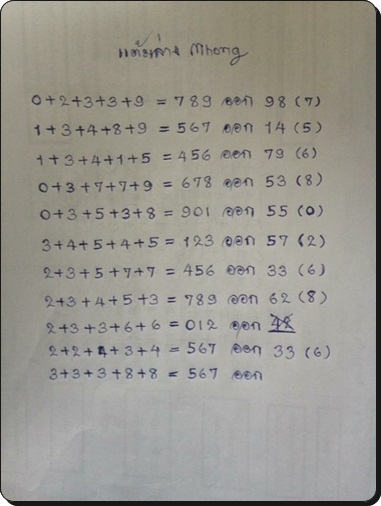 แต้มล่าง Mhong
0+2+3+3+9 = 789 ออก 98 (7)
1+3+4+8+9 = 567 ออก 14 (5)
1+3+4+1+5 = 456 ออก 79 (6)
0+3+7+7+9 = 678 ออก 53 (8)
0+3+5+3+8 = 901 ออก 55 (0)
3+4+5+4+5 = 123 ออก 57 (2)
2+3+5+7+7 = 456 ออก 33 (6)
2+3+4+5+3 = 789 ออก 62 (8)
2+3+3+6+6 = 012 ออก 48
2+2+4+3+4 = 567 ออก 33 (6)
3+3+3+8+8 = 567 ออก